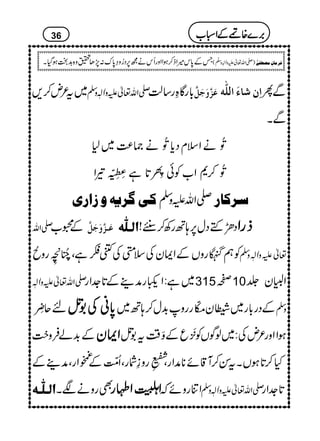 36 برے خاتمے کے اسباب
فرمانِ مصطفٰے (صلی اللہ تعالیٰ علیہ واٰلہٖ وسلم) جس کے پاس میرا ذکر ہوا اور اُس نے مجھ پر دُرود پاک نہ پڑھا تحقیق وہ بدبخت ہو گیا۔
گے پھر اِن شَاءَ اللّٰہ عَزَّوَجَلَّ بارگاہِ رسالت صلی اللہ تعالیٰ علیہ واٰلہٖ وسلم میں یہ عرض کریں
گے۔
تُو نے اسلام دیا تُو نے جماعت میں لیا
تُو کریم اب کوئی پھرتا ہے عَطِیَّہ تیرا
سرکار صلی اللہ علیہ وسلم کی گریہ و زاری
ذرا دھڑکتے دل پر ہاتھ رکھ کر سنئے! اللہ عَزَّوَجَلَّ کے محبوب صلی اللہ
تعالیٰ علیہ واٰلہٖ وسلم کو ہم گنہگاروں کے ایمان کی سلامتی کی کتنی فکر ہے، چنانچہ روحُ
البیان جلد 10 صفحہ 315 میں ہے: ایک بار مدینے کے تاجدار صلی اللہ تعالیٰ علیہ واٰلہٖ
وسلم کے دربار میں شیطان مکار روپ بدل کر ہاتھ میں پانی کی بوتل لئے حاضر
ہوا اور عرض کی: میں لوگوں کو نزع کے وقت یہ بوتل ایمان کے بدلے فروخت
کیا کرتا ہوں۔ یہ سن کر آقائے نامدار، شفیعِ روزِ شمار، اُمّت کے غمخوار، مدینے کے
تاجدار صلی اللہ تعالیٰ علیہ واٰلہٖ وسلم اتنا روئے کہ اہلبیتِ اطہار بھی رونے لگے۔ اللہ